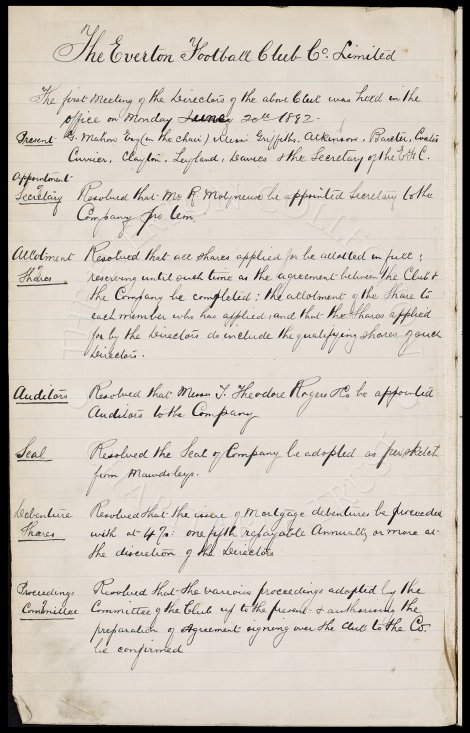 The Everton Football Club Co. Limited
The first Meeting of the Directors of the above Club was held in the
office on Monday June 20th 1892.
Present G. Mahon Esq (in the chair) Messrs Griffiths, Atkinson, Baxter, Coates
Currier, Clayton, Leyland, Davies & the Secretary of the E.F.C.
Appointment
of
Secretary Resolved that Mr R. Molyneux be appointed Secretary to the
Company pro tem.
Allotment Resolved that all shares applied for be allotted in full;
of
Shares. reserving until such time as the agreement between the Club &
the Company be completed: the allotment of the Share to
each member who has applied, and that the Shares applied
for by the Directors do include the qualifying shares of such
Directors.
Auditors Resolved that Messrs T. Theodore Rogers & Co be appointed
Auditors to the Company.
Seal Resolved the Seal of Company be adopted as per sketch
from Mawdsleys.
Debenture Resolved that the issue of Mortgage debentures be proceeded
Shares with at 4%: one fifth repayable Annually or more at
the discretion of the Directors
Proceedings Resolved that the various proceedings adopted by the
of
Committee Committee of the Club up to the present & authorising the
preparation of Agreement signing over the Club to the Co.
be confirmed